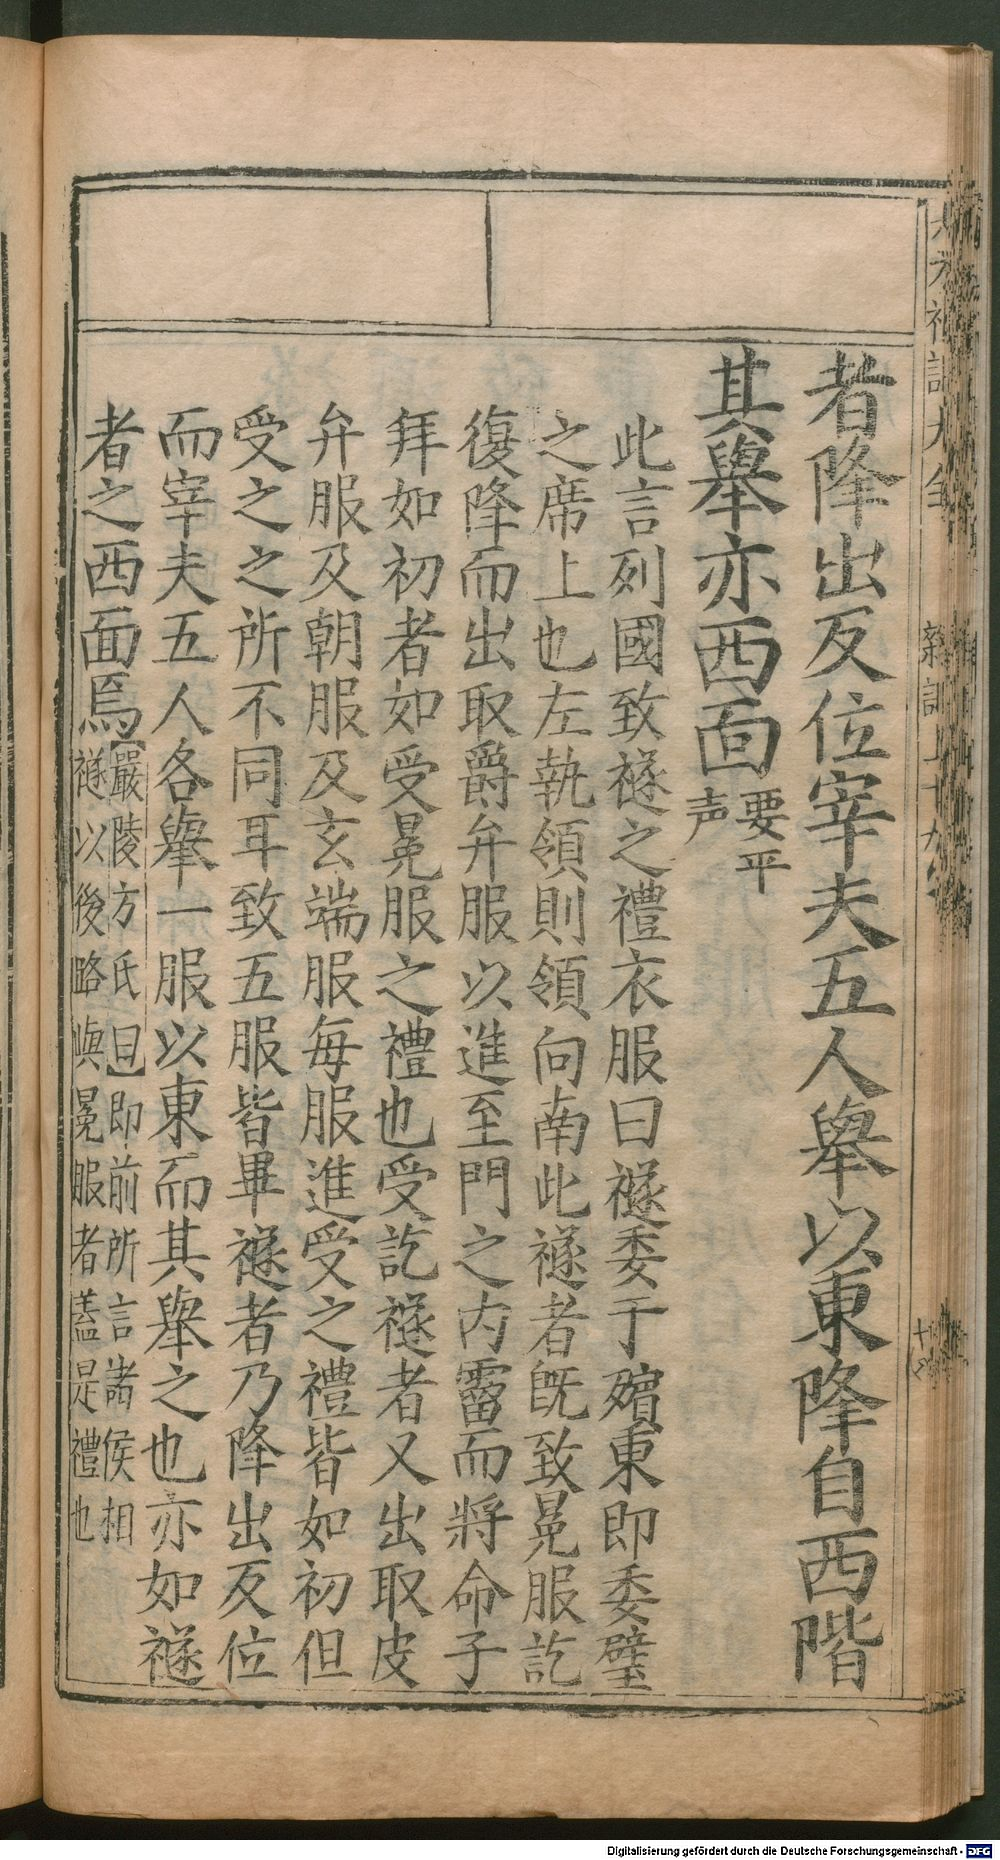 者降出反位宰夫五人舉以東降自西階
其舉亦西面
要平
声
此言列國致襚之禮衣服曰襚委于殯東即委璧
之席上也左執領則領向南此襚者既致冕服訖
復降而出取爵弁服以進至門之内霤而將命子
拜如初者如受冕服之禮也受訖襚者又出取皮
弁服及朝服及玄端服每服進受之禮皆如初但
受之之所不同耳致五服皆畢襚者乃降出反位
而宰夫五人各舉一服以東而其舉之也亦如襚
者之西面焉
【嚴陵方氏曰】即前所言諸侯相
襚以後路與冕服者蓋是禮也
雜記上十九
Digitalisierung gefördert durch die Deutsche Forschungsgemeinschaft - DFG